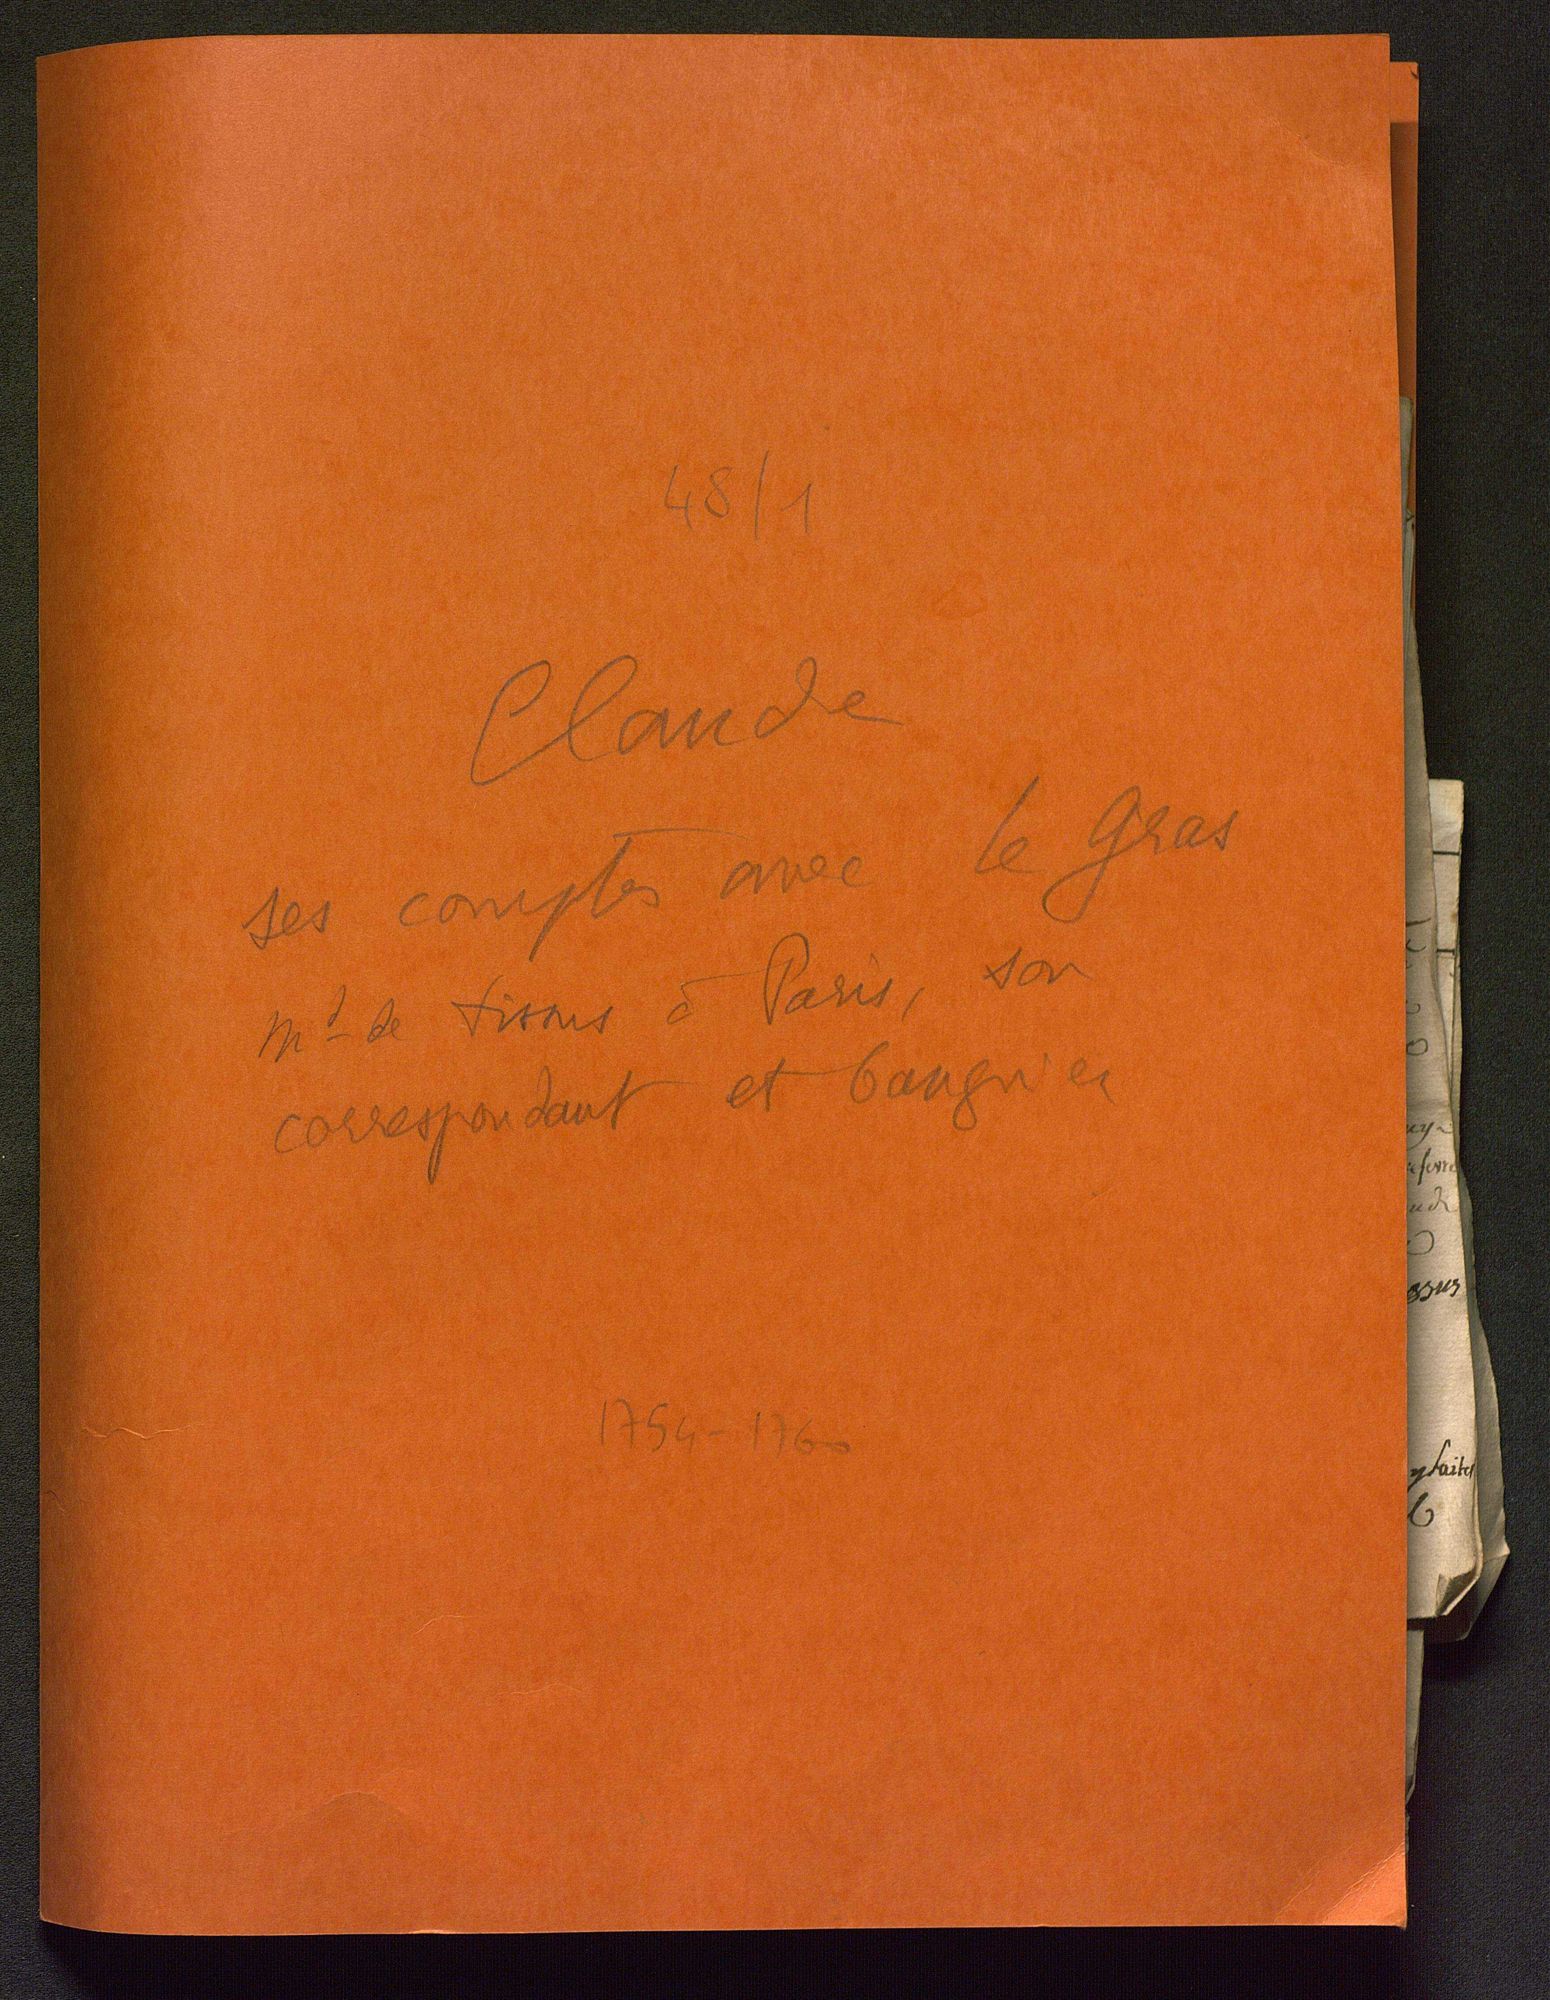 48/1
Claude
ses comptes avec le Gras
md de tissus à Paris, son
correspondant et banquier
1754-1760
ssus
faites